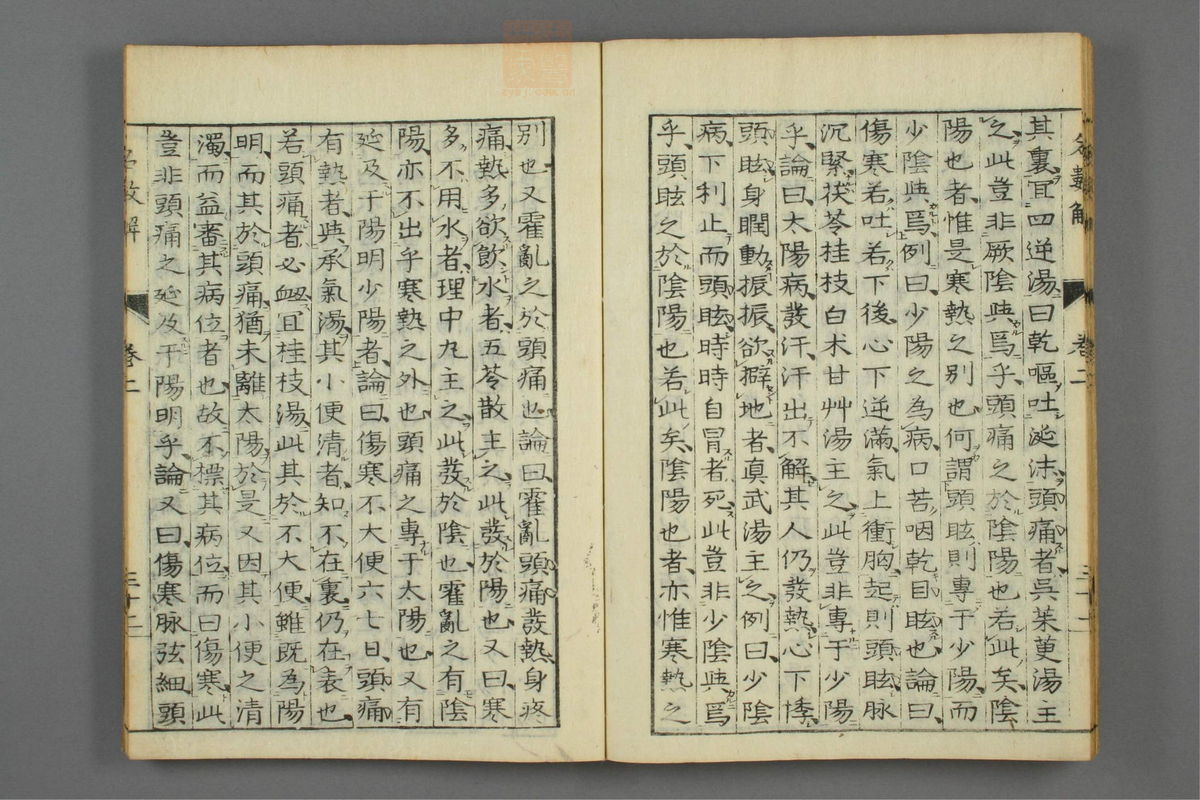 其裏宜四逆湯曰乾嘔吐涎沫頭痛者吳茱萸湯主
之此豈非厥陰與焉乎頭痛之於陰陽也若此矣陰
陽也者惟是寒熱之別也何謂頭眩則專于少陽而
少陰與焉例曰少陽之為病口苦咽乾目眩也論曰
傷寒若吐若下後心下逆滿氣上衝胸起則頭眩脉
沉緊茯苓桂枝白朮甘艸湯主之此豈非專于少陽
乎論曰太陽病發汗汗出不解其人仍發熱心下悸
頭眩身瞤動振振欲擗地者真武湯主之例曰少陰
病下利止而頭眩時時自冒者死此豈非少陰與焉
乎頭眩之於陰陽也若此矣陰陽也者亦惟寒熱之
卷二
三十二
別也又霍亂之於頭痛也論曰霍亂頭痛發熱身疼
痛熱多欲飲水者五苓散主之此發於陽也又曰寒
多不用水者理中丸主之此發於陰也霍亂之有陰
陽亦不出乎寒熱之外也頭痛之專于太陽也又有
延及于陽明少陽者論曰傷寒不大便六七日頭痛
有熱者與承氣湯其小便清者知不在裏仍在表也
若頭痛者必衄宜桂枝湯此其於不大便雖既為陽
明而其於頭痛猶未離太陽於是又因其小便之清
濁而益審其病位者也故不標其病位而曰傷寒此
豈非頭痛之延及于陽明乎論又曰傷寒脉弦細頭
卷二